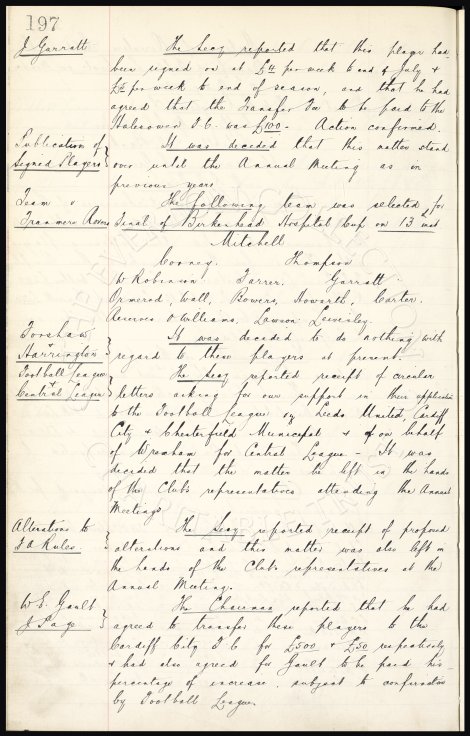 197
J Garratt
The Secy reported that this player had
been signed on at £4 per week to end of July &
per week to end of season, and that he had
agreed that the Transfer Fee to be paid to the
Halesowen F.C. was £100 - Action confirmed.
Publication of
Signed Players
It was decided that this matter stand
over until the Annual Meeting as in
previous years
Team v
Tranmere Rovers
The following team was selected for
Final of Birkenhead Hospital Cup on 13th inst
Mitchell
Cooney. Thompson
W Robinson Farrer. Garratt.
Ormerod, Wall, Bowers, Howarth, Carter.
Reserves O Williams, Lawson Leversley.
Forshaw
&
Harrington
It was decided to do nothing with
regard to these players at present.
Football League
&
Central League
The Secy reported receipt of circular
letters asking for our support in their application
to the Football League of Leeds United, Cardiff
City & Chesterfield Municipal & of on behalf
of Wrexham for Central League - It was
decided that the matter be left in the hands
of the Clubs representatives attending the Annual
Meetings
Alterations to
F A Rules.
The Secy reported receipt of proposed
alterations and this matter was also left in
the hands of the Clubs representatives at the
Annual Meeting.
W. E. Gault
J Page
The Chairman reported that he had
agreed to transfer these players to the
Cardiff City F C for £500 & £50 respectively
& had also agreed for Gault to be paid his
percentage of increase. subject to confirmation
by Football League.